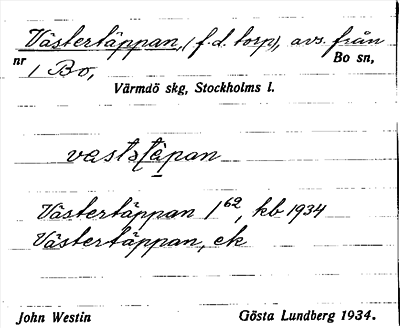 Västertäppan, (f.d. torp), avs. från
nr 1 Bo, Bo sn,
Värmdö skg, Stockholms l.
vastətäpan
Västertäppan 1⁶², kb 1934
Västertäppan, ek
John Westin Gösta Lundberg 1934.